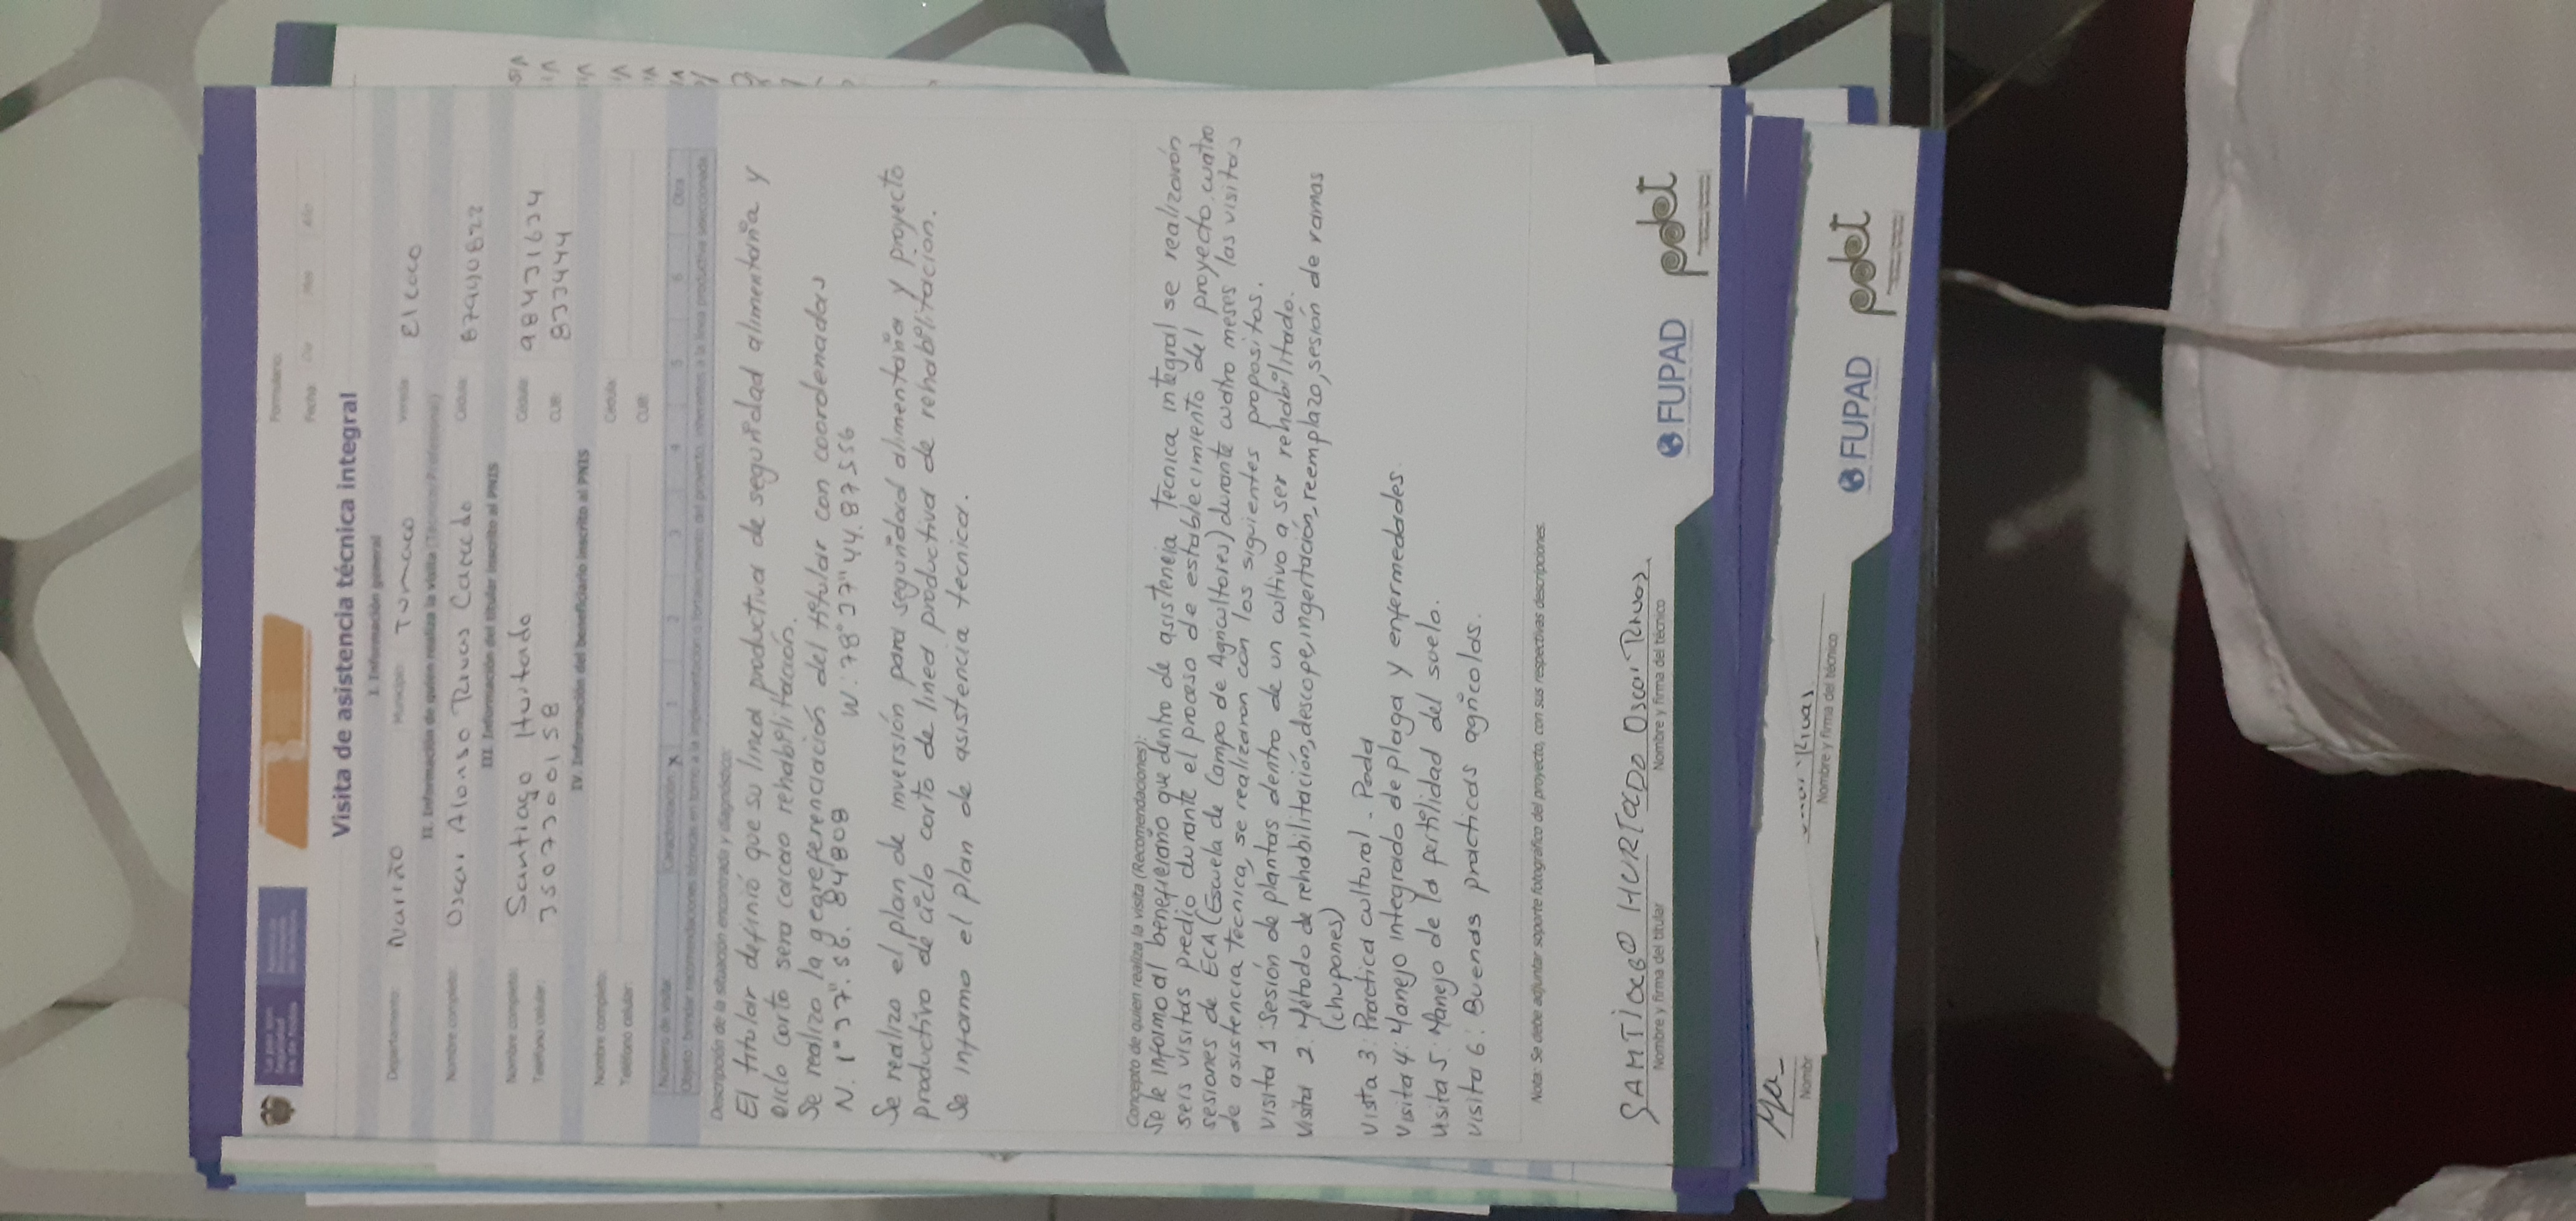 Formulario:
Fecha: Día Mes Año
Visita de asistencia técnica integral
I. Información general
Departamento: Nariño Municipio: Tumaco Vereda: El coco
II. Información de quien realiza la visita (Técnico o Profesional)
Nombre completo: Oscar Alonso Rivas Caicedo Cédula:
III. Información del titular inscrito al PNIS
Nombre completo: Santiago Hurtado Cédula: 98431634
Teléfono celular: CUB: 8333444
IV. Información del beneficiario inscrito al PNIS
Nombre completo: Cédula:
Teléfono celular: CUB:
Número de visita: Caracterización X 1 2 3 4 5 6 Otra
Objeto: brindar recomendaciones técnicas en torno a la implementación o fortalecimiento del proyecto, inherentes a la línea productiva seleccionada
Descripción de la situación encontrada y diagnóstico:
El titular definió que su linea productiva de seguridad alimentaria y
ciclo corto sera cacao rehabilitación.
Se realizo la georeferenciación del titular con coordenadas
N. 1°37".56.84808 W: 78°37"44.87556
Se realizo el plan de inversión para seguridad alimentaria y proyecto
productivo de ciclo corto de linea productiva de rehabilitacion.
Se informo el plan de asistencia tecnica.
Concepto de quien realiza la visita (Recomendaciones):
Se le informo al beneficiario que dentro de asistencia técnica integral se realizarón
seis visitas predio durante el proceso de establecimiento del proyecto. cuatro
sesiones de ECA (Escuela de Campo de Agricultores) durante cuatro meses las visitas
de asistencia técnica, se realizaron con los siguientes propositos.
Visita 1: Sesión de plantas dentro de un cultivo a ser rehabilitado.
Visita 2. Método de rehabilitación, descope, ingertación, reemplazo, sesión de ramas
(chupones)
Vista 3: Practica cultural. Poda
Visita 4: Manejo integrado de plaga y enfermedades.
Visita 5: Manejo de la fertilidad del suelo.
Visita 6: Buenas practicas agricolas.
Nota: Se debe adjuntar soporte fotográfico del proyecto, con sus respectivas descripciones.
SAMTIAGO HURTADO Oscar Rivas
Nombre y firma del titular Nombre y firma del técnico
FUPAD pdet
Rivas
Nombr Nombre y firma del técnico
FUPAD pdet